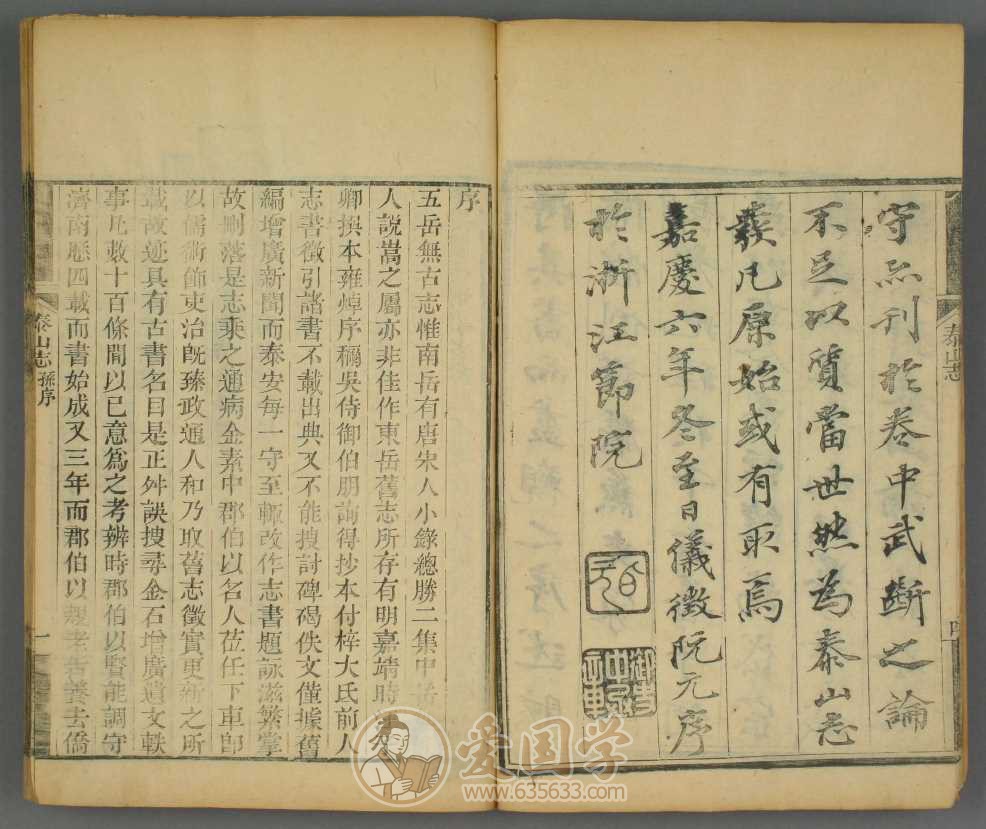 守亦刊於卷中武斷之論
不足以質當世然為泰山志
發凡原始或有取焉
嘉慶六年冬至日儀徵阮元序
於浙江節院
泰山志
四
序
五岳無古志惟南岳有唐宋人小錄總勝二集中岳
人說嵩之屬亦非佳作東岳舊志所存有明嘉靖時
卿撰本雍焯序稱吳侍御伯朋詢得抄本付梓大氐前人
志書徵引諸書不載出典又不能搜討碑碣佚文僅據舊
編增廣新聞而泰安每一守至輒改作志書題詠滋繁掌
故刪落是志乘之通病金素中郡伯以名人莅任下車卽
以儒術飾吏治旣臻政通人和乃取舊志徵實更新之所
載故迹具有古書名目是正舛誤搜尋金石增廣遺文軼
事凡數十百條閒以已意爲之考辨時郡伯以賢能調守
濟南歷四載而書始成又三年而郡伯以親老告養去僑
泰山志 孫序
一
爱国学
www.635633.com